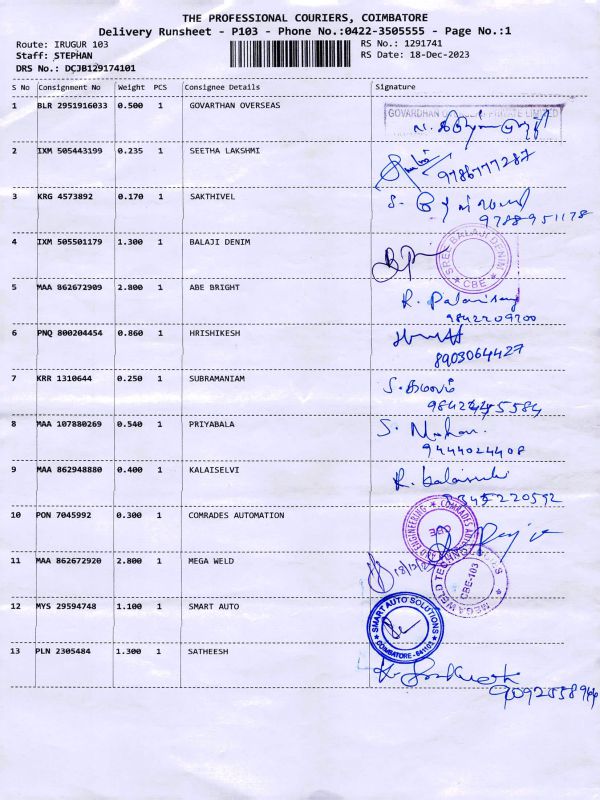 THE PROFESSIONAL COURIERS, COIMBATORE
Delivery Runsheet - P103 - Phone No.:0422-3505555 - Page No.:1
Route: IRUGUR 103 RS No.: 1291741
Staff: STEPHAN RS Date: 18-Dec-2023
DRS No.: DCJB129174101
S No Consignment No Weight PCS Consignee Details Signature
1 BLR 2951916033 0.500 1 GOVARTHAN OVERSEAS
2 IXM 505443199 0.235 1 SEETHA LAKSHMI
9786777287
3 KRG 4573892 0.170 1 SAKTHIVEL
9788951178
4 IXM 505501179 1.300 1 BALAJI DENIM
SREE BALAJI DENIM CBE
5 MAA 862672909 2.800 1 ABE BRIGHT
9842209700
6 PNQ 800204454 0.860 1 HRISHIKESH
8903064427
7 KRR 1310644 0.250 1 SUBRAMANIAM
8 MAA 107880269 0.540 1 PRIYABALA
S. Mohan
9444024408
9 MAA 862948880 0.400 1 KALAISELVI
10 PON 7045992 0.300 1 COMRADES AUTOMATION
11 MAA 862672920 2.800 1 MEGA WELD
CBE-103
12 MYS 29594748 1.100 1 SMART AUTO
SMART AUTO SOLUTIONS COIMBATORE - 641103
13 PLN 2305484 1.300 1 SATHEESH